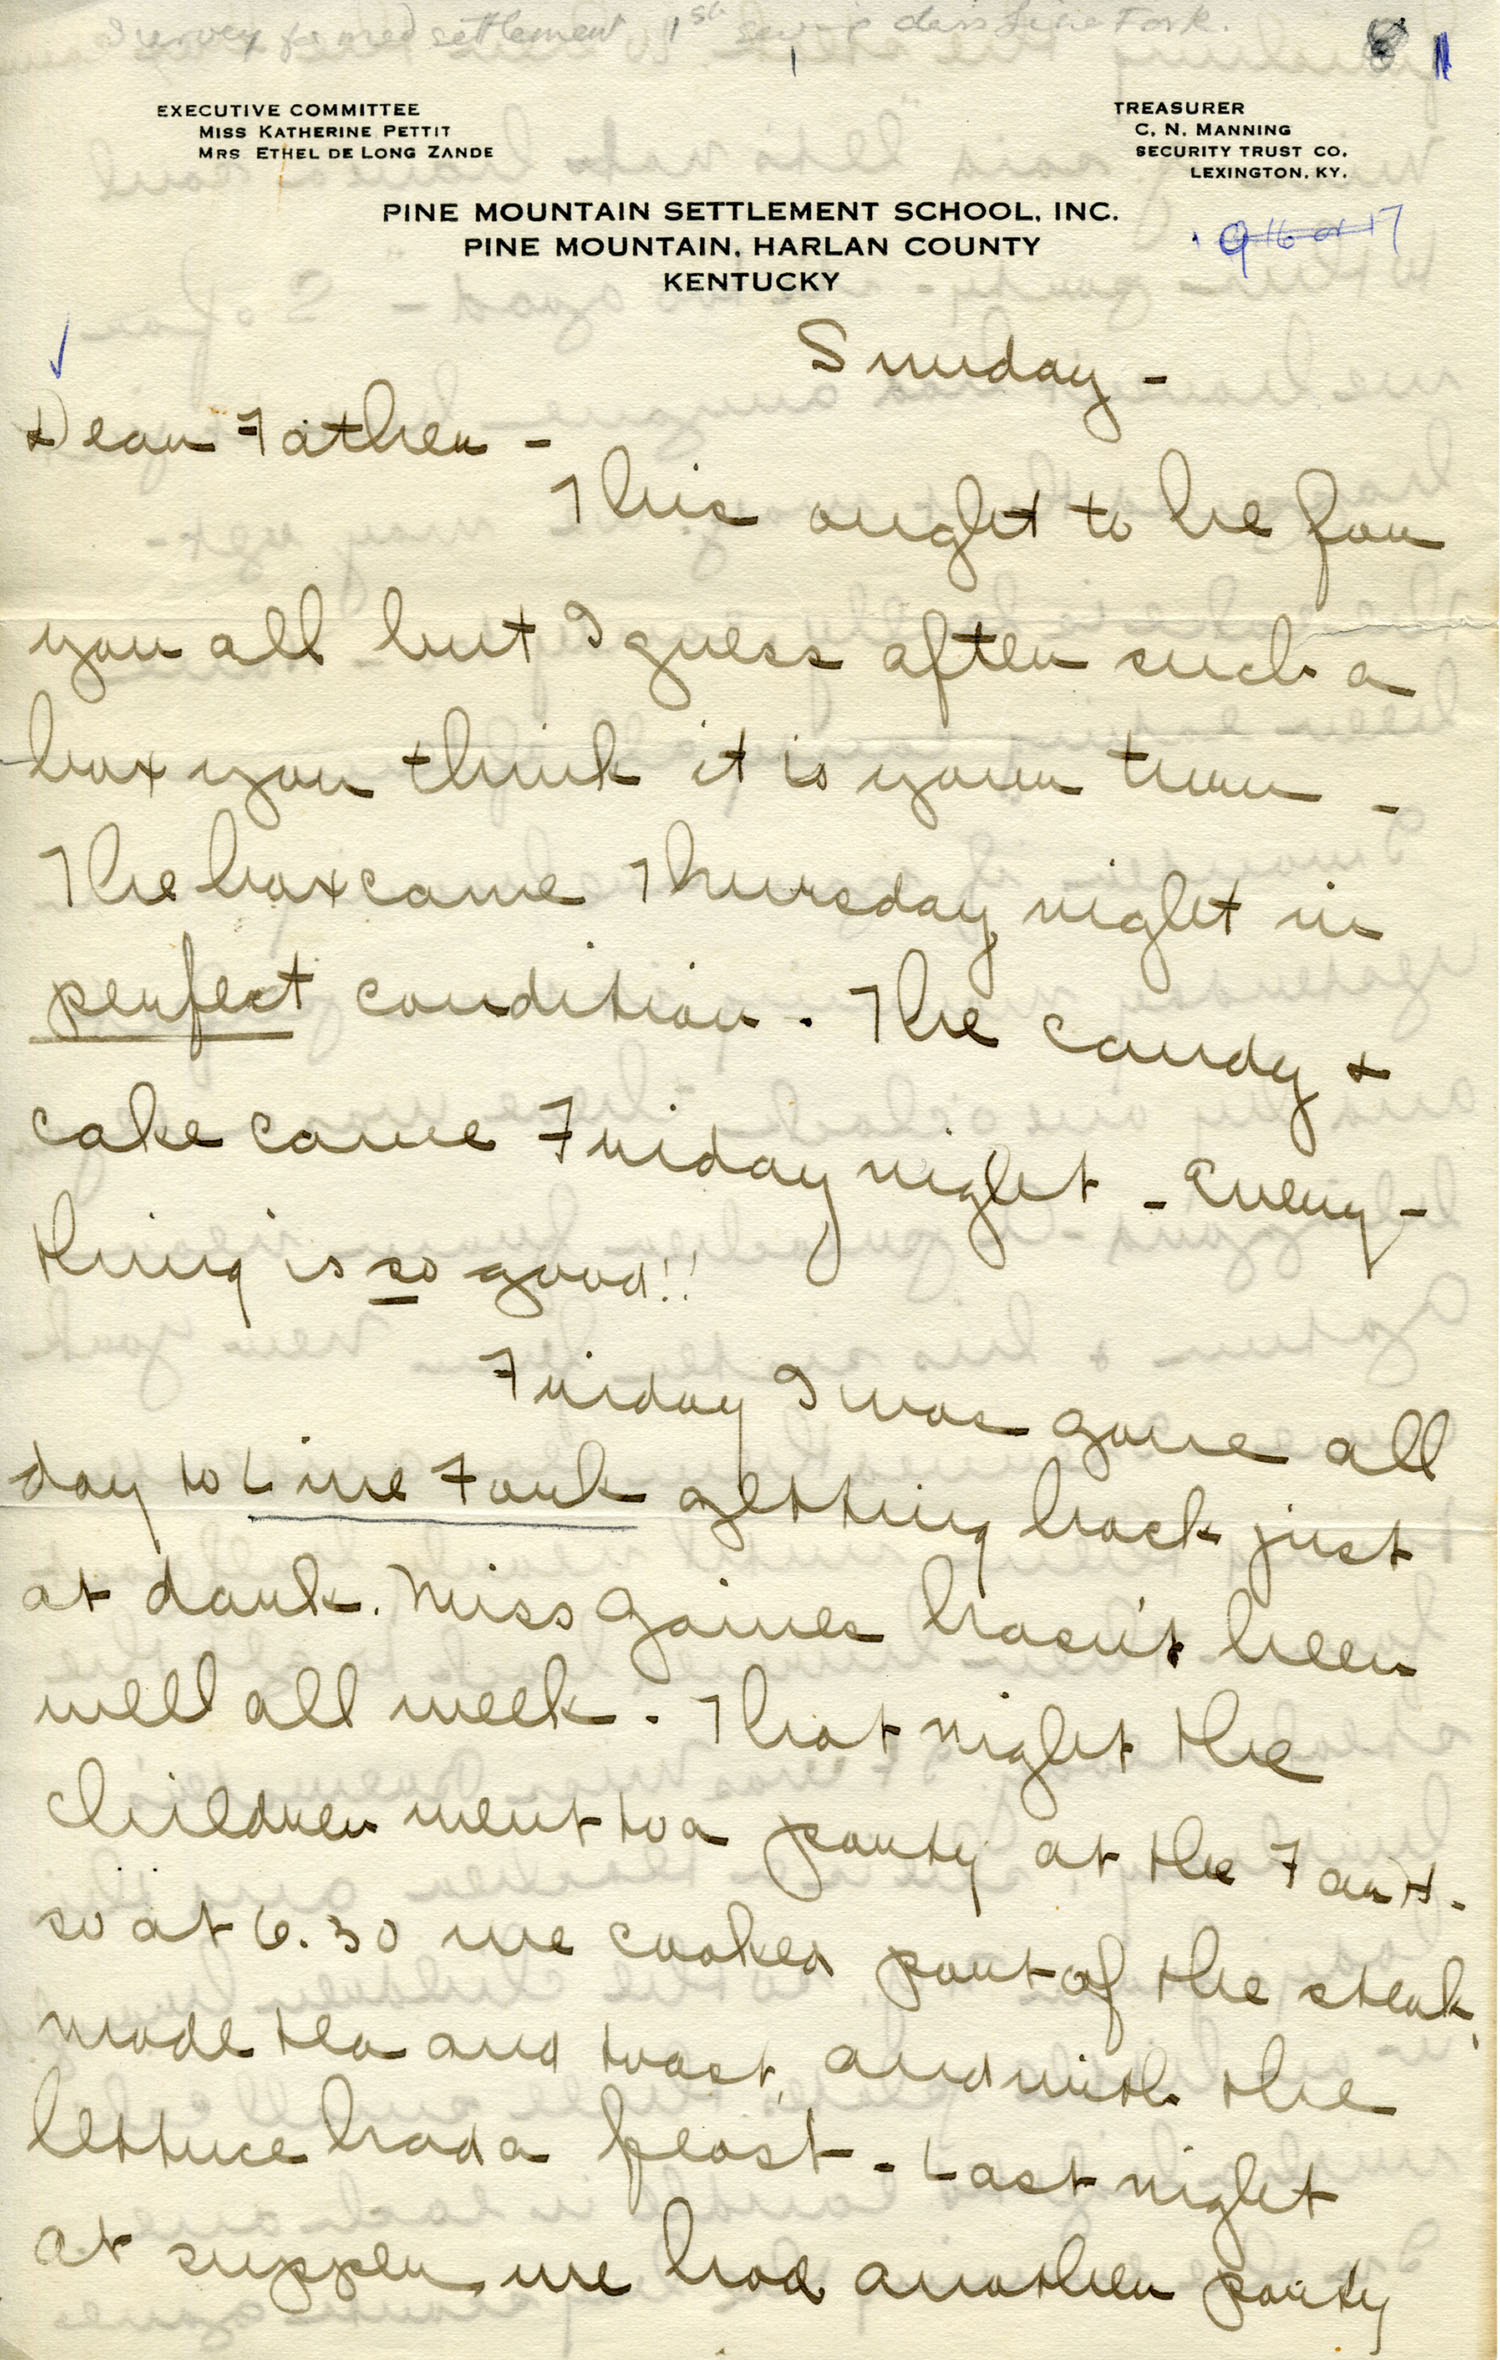 settlement 1st Line Fork.
EXECUTIVE COMMITTEE
MISS KATHERINE PETTIT
MRS ETHEL DE LONG ZANDE
TREASURER
C. N. MANNING
SECURITY TRUST CO.
LEXINGTON, KY.
PINE MOUNTAIN SETTLEMENT SCHOOL, INC.
PINE MOUNTAIN, HARLAN COUNTY
KENTUCKY
1916 or 17
Sunday -
Dear Father -
This ought to be for
you all but I guess after such a
box you think it is your turn -
The box came Thursday night in
perfect condition. The candy +
cake came Friday night - Every-
thing is so good!!
Friday I was gone all
day to Line Fork getting back just
at dark. Miss Gaines hasn't been
well all week. That night the
children went to a party at the Far H.
so at 6.30 we cooked part of the steak,
made tea and toast, and with the
lettuce had a feast. Last night
at supper, we had another party